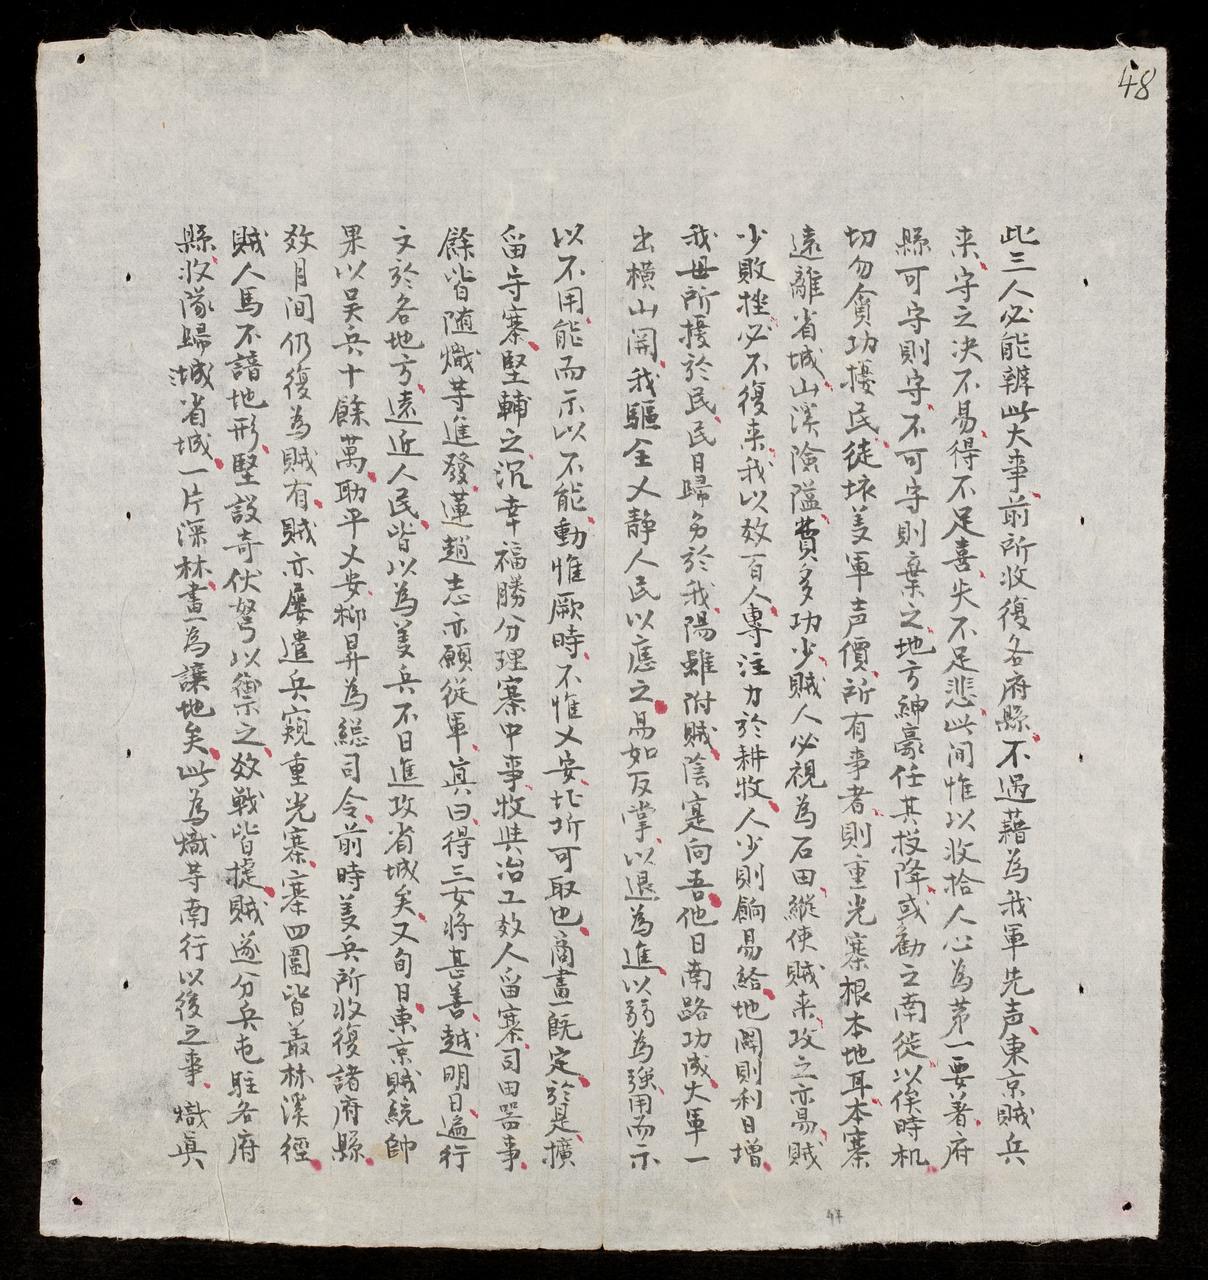 48
此三人必能辦此大事前所收復各府縣不過藉為我軍先声東京賊兵
来守之決不易得不足喜失不足悲此间惟以收拾人心為苐一要著府
縣可守則守不可守則棄之地方紳豪任其投降或勸之南徙以俟時机
切勿貪功擾民徒坏美軍声價所有事者則重光寨根本地耳本寨
遠離省城山溪險隘費多功少賊人必視為石田縱使賊来攻之亦易賊
少敗挫必不復来我以效百人專注力於耕牧人少則餉易給地闢則利日增
我毋所擾於民民日歸勿於我陽雖附賊陰寔向吾他日南路功成大軍一
出横山関我驅全乂静人民以應之易如反掌以退為進以弱為強用而示
以不用能而示以不能動惟厥時不惟乂安北圻可取也商畫既定於是擴
留守寨堅輔之沉幸福勝分理寨中事牧與冶工效人留寨司田噐事
餘皆随熾等進發蓮趙志亦願從軍眞曰得三女将甚善越明日遍行
文於各地方遠近人民皆以為美兵不日進攻省城矣又旬日東京賊統帥
果以吴兵十餘萬助平乂安柳昇為総司令前時美兵所收復諸府縣
效月间仍復為賊有賊亦屡遣兵窺重光寨寨四圍皆叢林溪徑
賊人馬不諳地形堅設奇伏弩以禦之效戰皆捷賊遂分兵屯駐各府
縣收隊歸城省城一片深林畫為讓地矣此為熾等南行以後之事 熾眞
47